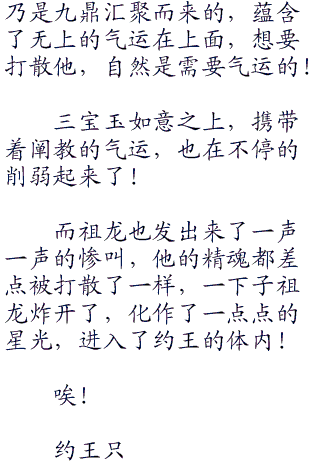 乃是九鼎汇聚而来的，蕴含
了无上的气运在上面，想要
打散他，自然是需要气运的！
三宝玉如意之上，携带
着阐教的气运，也在不停的
削弱起来了！
而祖龙也发出来了一声
一声的惨叫，他的精魂都差
点被打散了一样，一下子祖
龙炸开了，化作了一点点的
星光，进入了约王的体内！
唉！
约王只